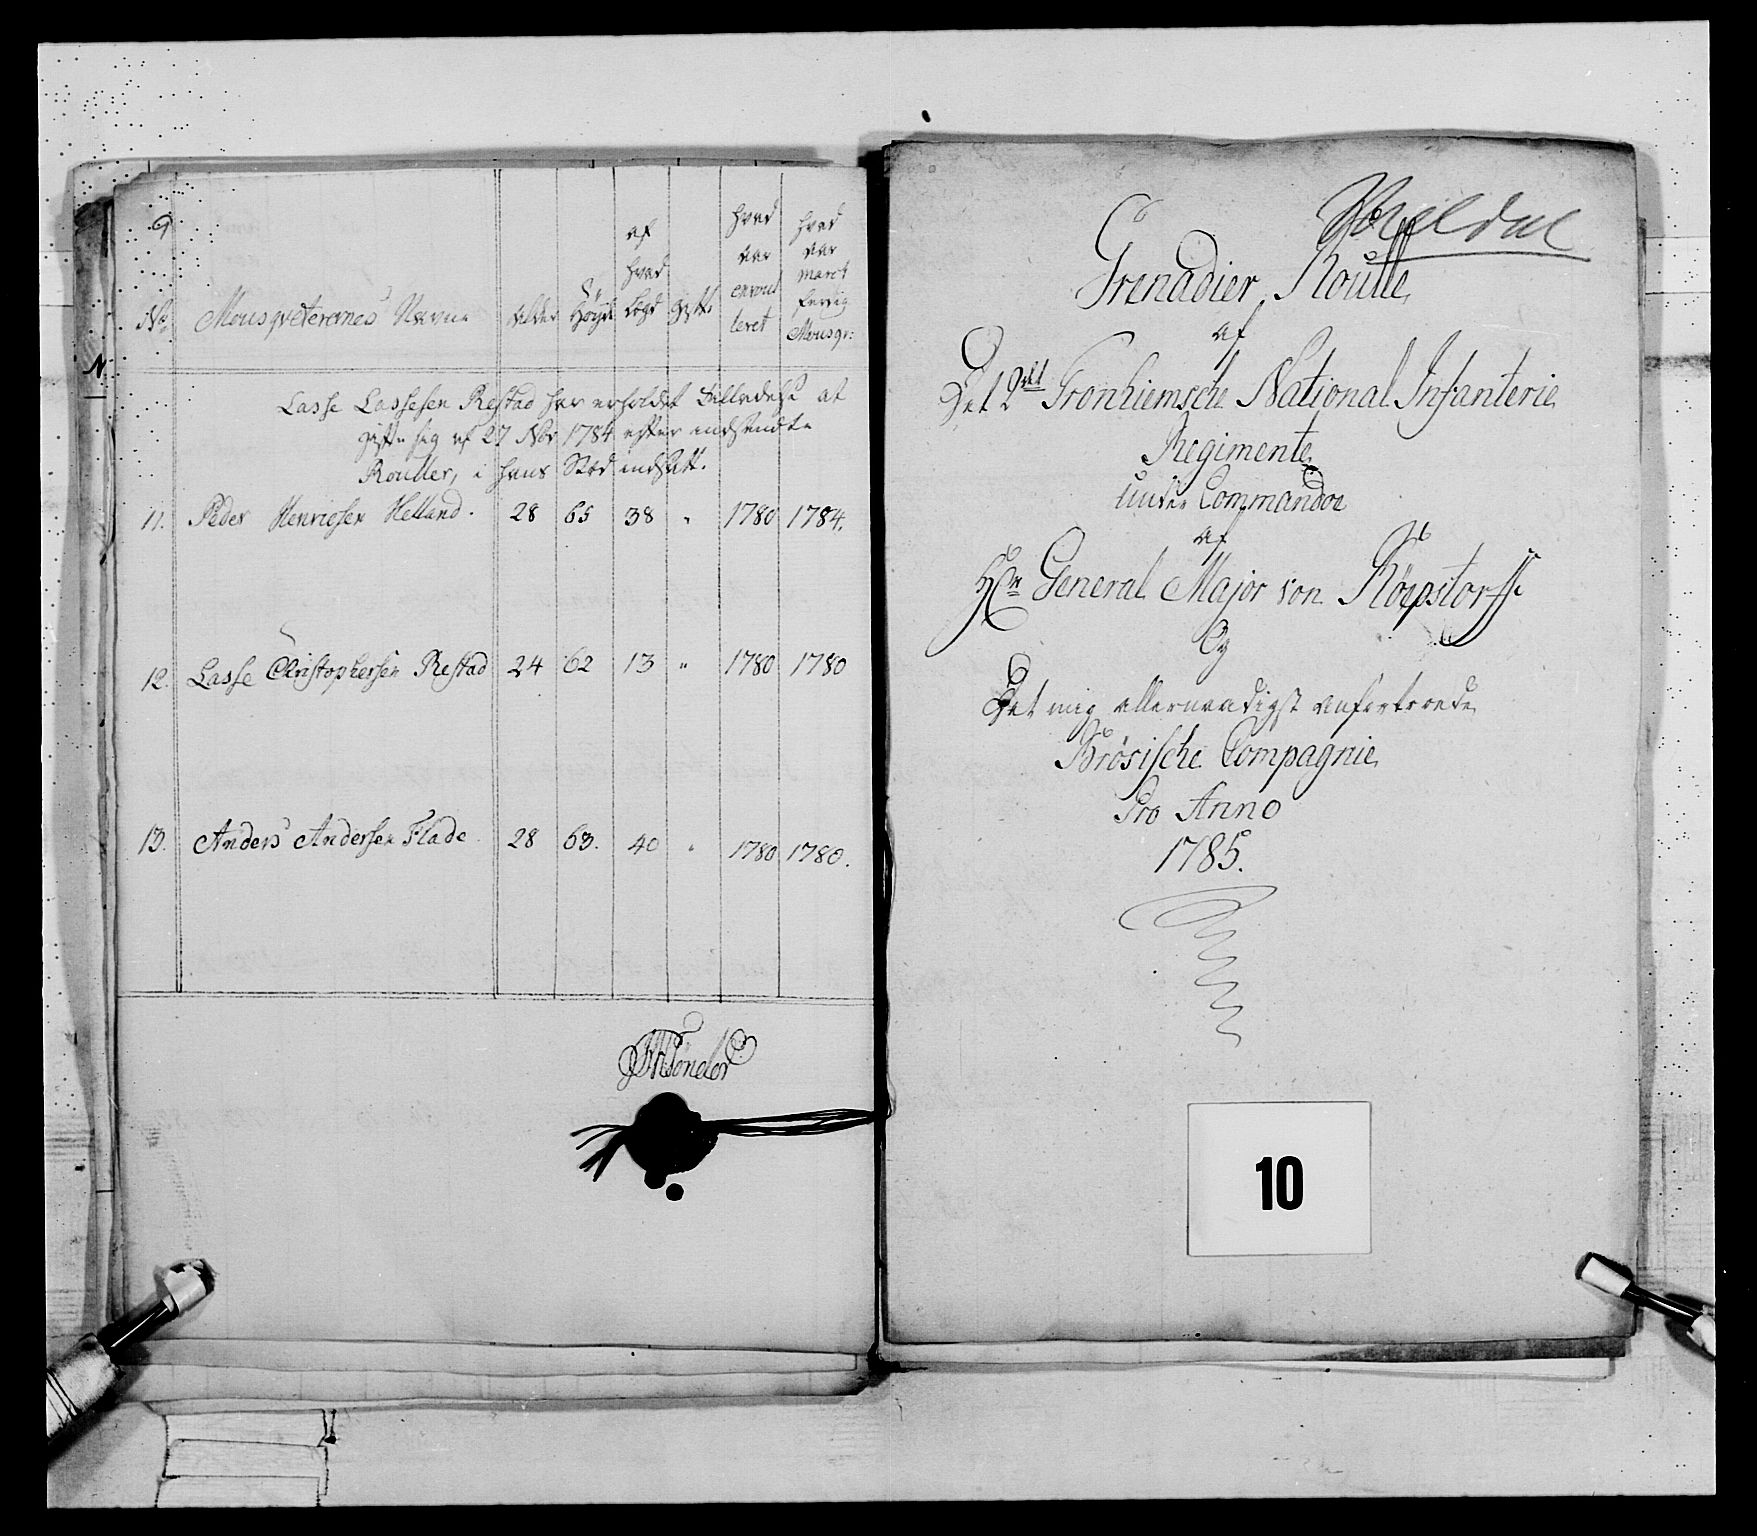 9
No
Mousqveterernes Navne
Alder
Høyde
af
hvad
Lægd
Gift
hvad
aar
enroul
leret
hvad
aar
march
færdig
Mousqr:
Lasse Lassesen Restad har erholdet Tilladelse at
gifte sig af 27 Nov 1784 efter indsendte
Roulle, i hans Stæd indsatt.
11. Peder Henricsen Helland. 28 65 38 " 1780 1784.
12. Lasse Christophersen Restad 24 62 13 " 1780 1780
13. Anders Andersen Flade 28 63. 40 " 1780 1780.
N
Grenadier Roulle
af
Det 2det Tronhiemsche National Infanterie
Regimente
under Commando
af
Hr General Major von Röepstorff
Og
Det mig allernaadigst anfortroede
Brösische Compagnie
Pro Anno
1785.
10